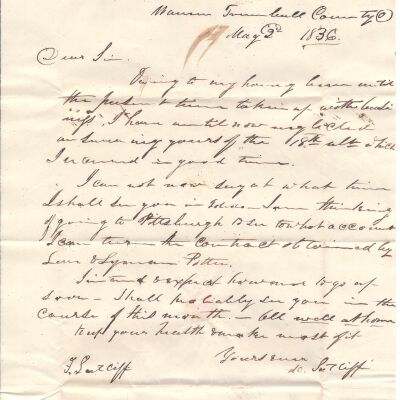 Warren Trumbull County O
May 2d 1836
Dear Sir,
Owing to my having been until
the present time taken up with busi
ness, I have until now neglected
answering yours of the 18th ult. which
I received in good time.
I can not now say at what time
I shall see you in - I am thinking
of going to Pittsburgh to see to what account
I can turn the Contract obtained by
& Lyman Potter.
I intend & expect however to go up
soon - I shall probably see you in the
course of this month. - All well at home
Keep your health & make most of it
Yours &
T. Sutcliff
Sutcliff